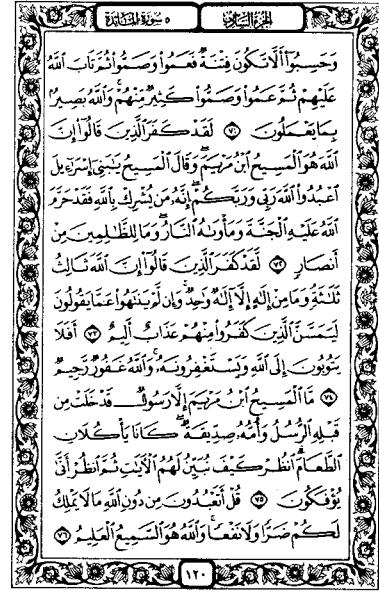 الجزء السادس
٥ سورة المائدة
وَحَسِبُوٓا۟ أَلَّا تَكُونَ فِتْنَةٌ فَعَمُوا۟ وَصَمُّوا۟ ثُمَّ تَابَ ٱللَّهُ
عَلَيْهِمْ ثُمَّ عَمُوا۟ وَصَمُّوا۟ كَثِيرٌ مِّنْهُمْ ۚ وَٱللَّهُ بَصِيرٌۢ
بِمَا يَعْمَلُونَ ٧١ لَقَدْ كَفَرَ ٱلَّذِينَ قَالُوٓا۟ إِنَّ
ٱللَّهَ هُوَ ٱلْمَسِيحُ ٱبْنُ مَرْيَمَ ۖ وَقَالَ ٱلْمَسِيحُ يَـٰبَنِىٓ إِسْرَٰٓءِيلَ
ٱعْبُدُوا۟ ٱللَّهَ رَبِّى وَرَبَّكُمْ ۖ إِنَّهُۥ مَن يُشْرِكْ بِٱللَّهِ فَقَدْ حَرَّمَ
ٱللَّهُ عَلَيْهِ ٱلْجَنَّةَ وَمَأْوَىٰهُ ٱلنَّارُ ۖ وَمَا لِلظَّـٰلِمِينَ مِنْ
أَنصَارٍ ٧٢ لَّقَدْ كَفَرَ ٱلَّذِينَ قَالُوٓا۟ إِنَّ ٱللَّهَ ثَالِثُ
ثَلَـٰثَةٍ ۘ وَمَا مِنْ إِلَـٰهٍ إِلَّآ إِلَـٰهٌ وَٰحِدٌ ۚ وَإِن لَّمْ يَنتَهُوا۟ عَمَّا يَقُولُونَ
لَيَمَسَّنَّ ٱلَّذِينَ كَفَرُوا۟ مِنْهُمْ عَذَابٌ أَلِيمٌ ٧٣ أَفَلَا
يَتُوبُونَ إِلَى ٱللَّهِ وَيَسْتَغْفِرُونَهُۥ ۚ وَٱللَّهُ غَفُورٌ رَّحِيمٌ
٧٤ مَّا ٱلْمَسِيحُ ٱبْنُ مَرْيَمَ إِلَّا رَسُولٌ قَدْ خَلَتْ مِن
قَبْلِهِ ٱلرُّسُلُ وَأُمُّهُۥ صِدِّيقَةٌ ۖ كَانَا يَأْكُلَانِ
ٱلطَّعَامَ ۗ ٱنظُرْ كَيْفَ نُبَيِّنُ لَهُمُ ٱلْـَٔايَـٰتِ ثُمَّ ٱنظُرْ أَنَّىٰ
يُؤْفَكُونَ ٧٥ قُلْ أَتَعْبُدُونَ مِن دُونِ ٱللَّهِ مَا لَا يَمْلِكُ
لَكُمْ ضَرًّا وَلَا نَفْعًا ۚ وَٱللَّهُ هُوَ ٱلسَّمِيعُ ٱلْعَلِيمُ ٧٦
١٢٠